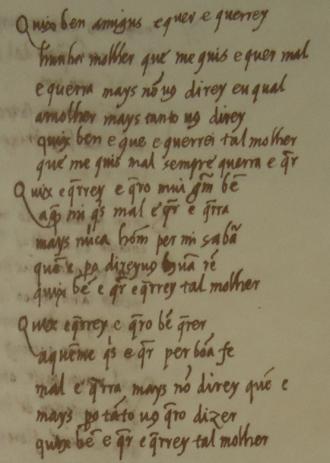 Quix ben amigus e quer e querrey
hunha molher que me quis e quer mal
e querra mays nõ uꝯ direy eu qual
a molher mays tanto uꝯ direy
quix ben e que e querrei tal molher
que me quis mal sempre querra e q̄r
Quix e q̄rrey e q̄ro mui gm̄ bẽ
a q̄ mi q̄s mal e q̄r e q̄rra
mays nũca hom̃ per mi sabã
quẽ e po direyuꝯ hũa rẽ
quix bẽ e q̄r e q̄rrey tal molher
Quix e q̄rrey e q̄ro bẽ q̄rer
a quẽ me q̄s e q̄r per bõa fe
mal e q̄rra mays nõ direy quẽ e
mays po tãto uꝯ q̄ro dizer
quix bẽ e q̄r e q̄rrey tal molher